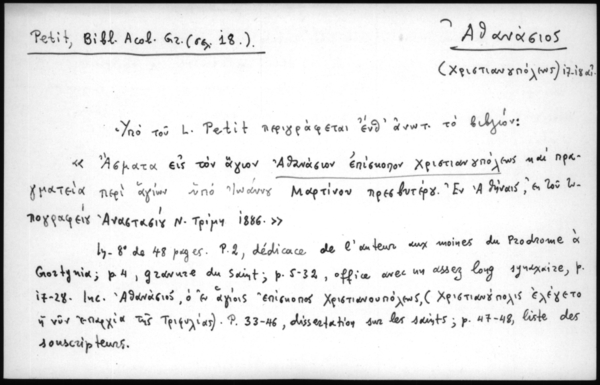 Petit, Bibl. Acol. Gr. (σελ. 18.).
Ἀθανάσιος
(Χριστιανουπόλεως) 17-18 αἰ.
Ὑπὸ τοῦ L. Petit περιγράφεται ἐνθ' ἀνωτ. τὸ βιβλίον:
« Ἄσματα εἰς τὸν ἅγιον Ἀθανάσιον ἐπίσκοπον Χριστιανουπόλεως καὶ πρα-
γματεία περὶ ἁγίων ὑπὸ Ἰωάννου Μαρτίνου πρεσβυτέρου. Ἐν Ἀθήναις, ἐκ τοῦ τυ-
πογραφείου Ἀναστασίου Ν. Τρίμη 1886. »
In-8° de 48 pages. P. 2, dédicace de l'auteur aux moines du Prodrome à
Gortynia; p. 4, gravure du Saint; p. 5-32, office avec un assez long synaxaire, p.
17-28. Inc. Ἀθανάσιος, ὁ ἐν ἁγίοις ἐπίσκοπος Χριστιανουπόλεως, (Χριστιανόπολις ἐλέγετο
ἡ νῦν ἐπαρχία τῆς Τριφυλίας). P. 33-46, dissertation sur les saints; p. 47-48, liste des
souscripteurs.